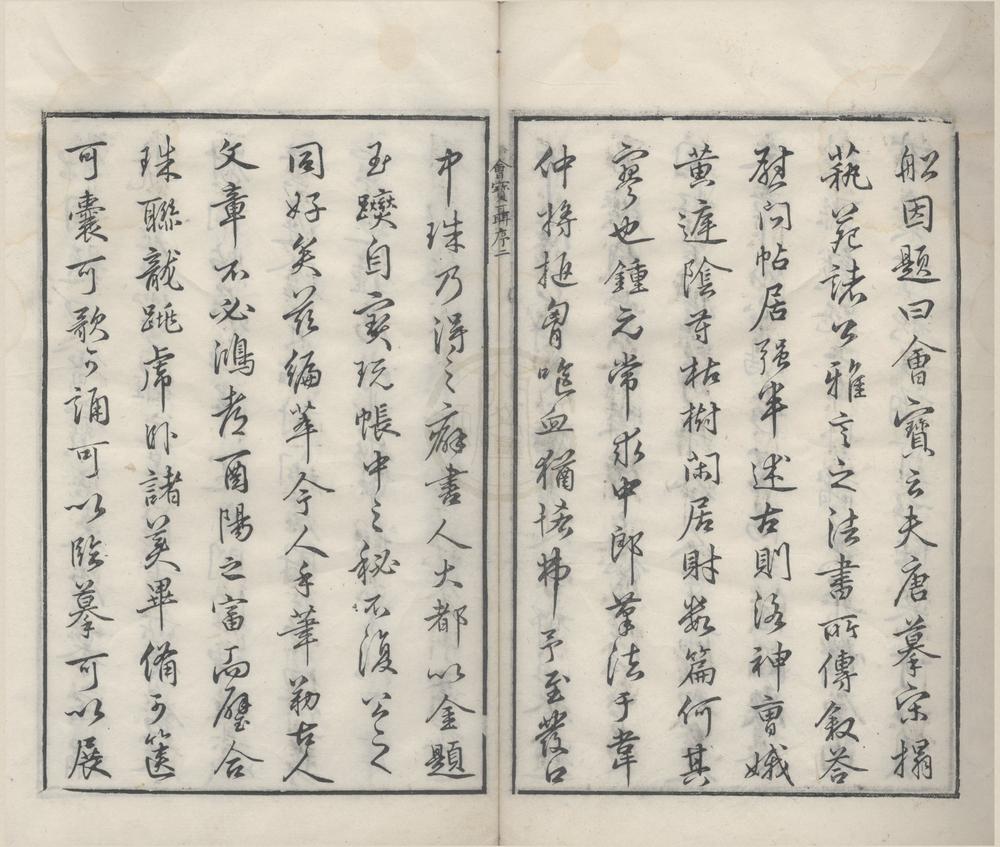 船因題曰會寶云夫唐摹宋搨
蓺苑諸公雅言之法書所傳敘答
慰問帖居强半述古則洛神曹娥
黄庭陰苻枯樹閑居財數篇何其
寥也鍾元常求中郎筆法于韋
仲將搥胷嘔血猶恡弗予至發口
中珠乃得之癖書人大都以金題
玉躞自寶玩帳中之秘不復公之
同好矣茲編萃今人手筆勒古人
文章不必鴻考酉陽之富而璧合
珠聯龍跳虎卧諸美畢備可篋
可囊可歌可誦可以臨摹可以展
會寶 序二